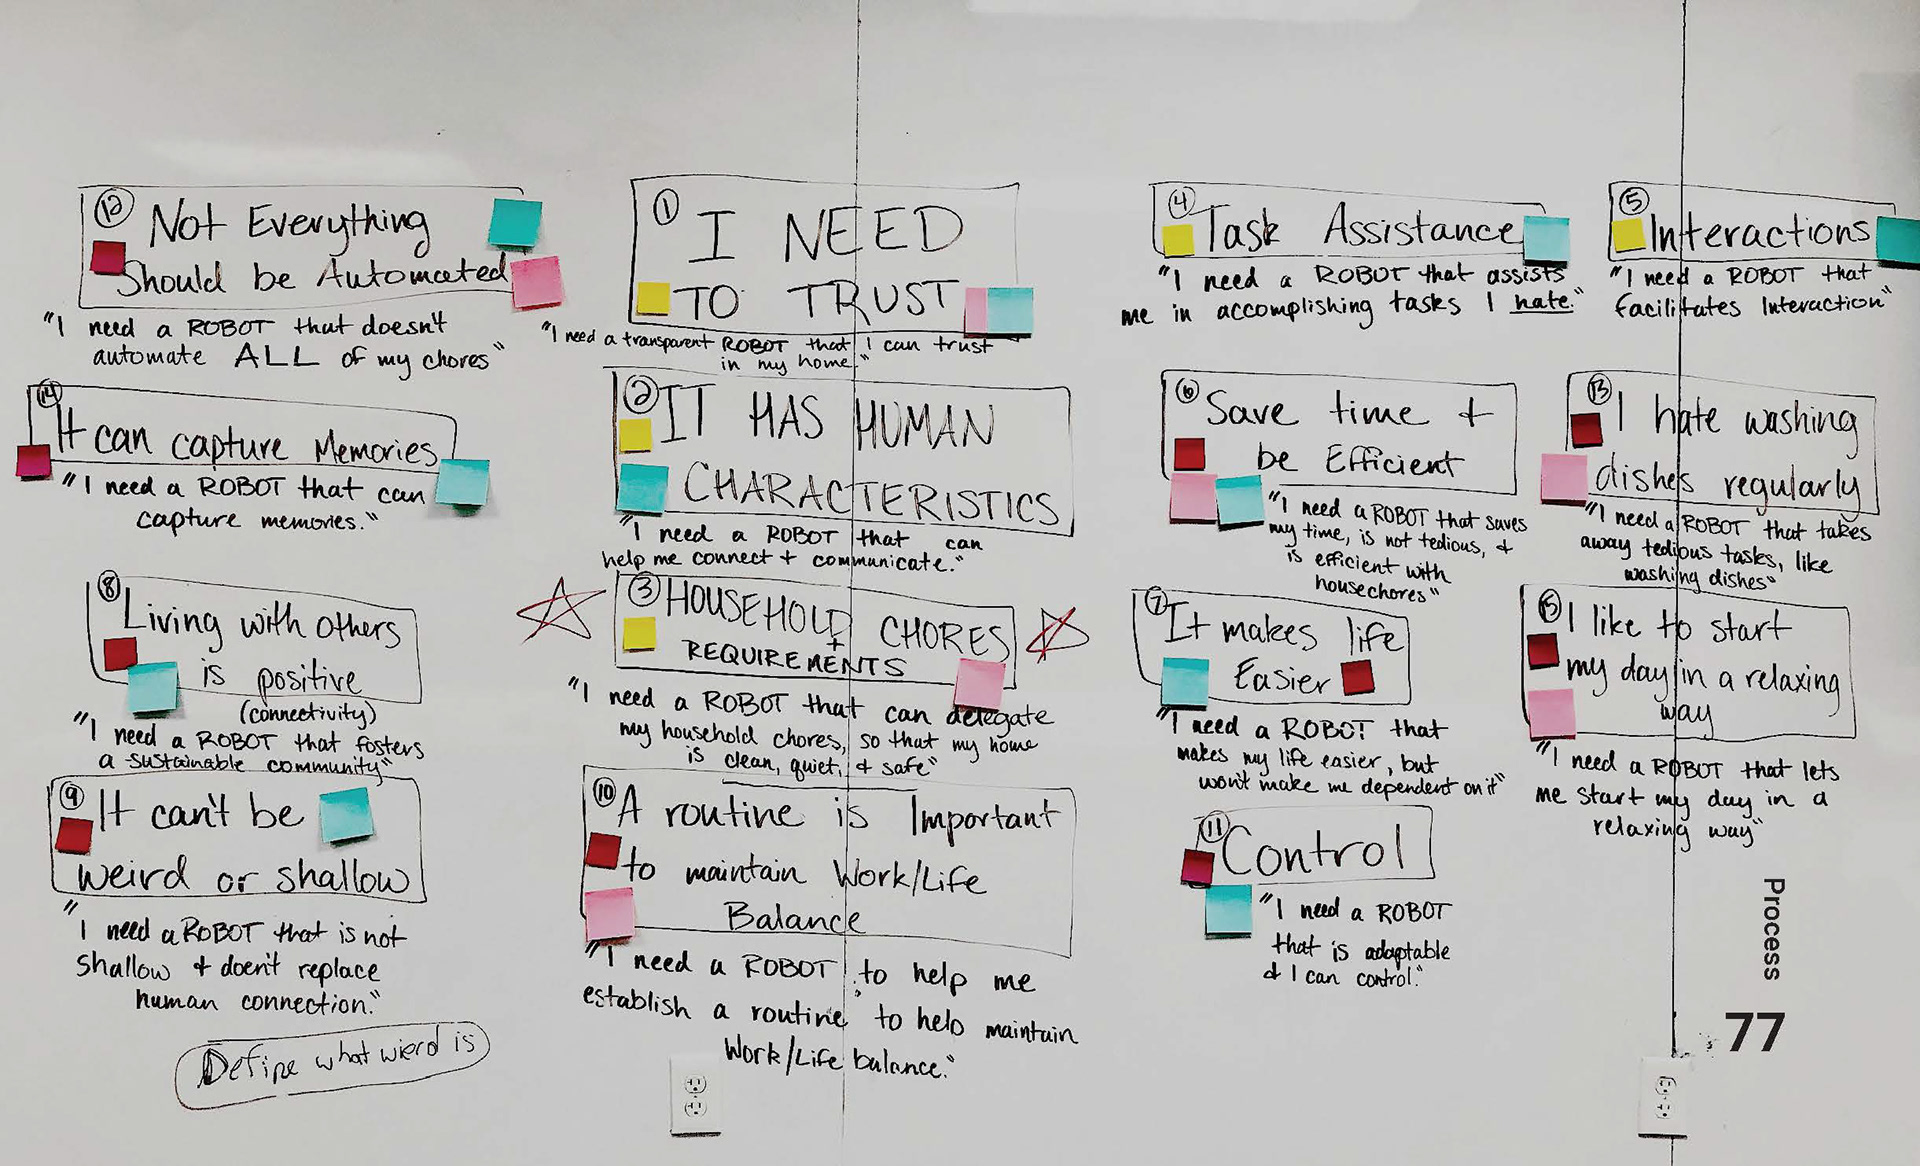 12
Not Everything
Should be Automated
"I need a ROBOT that doesn't
automate ALL of my chores"
14
It can capture Memories
"I need a ROBOT that can
capture memories."
8
Living with others
is positive
(connectivity)
"I need a ROBOT that fosters
a sustainable community"
9
It can't be
weird or shallow
"I need a ROBOT that is not
shallow + doen't replace
human connection."
Define what wierd is
1
I NEED
TO TRUST
"I need a transparent ROBOT that I can trust
in my home."
2
IT HAS HUMAN
CHARACTERISTICS
"I need a ROBOT that can
help me connect + communicate."
3
HOUSEHOLD CHORES
+
REQUIREMENTS
"I need a ROBOT that can delegate
my household chores, so that my home
is clean, quiet, & safe"
10
A routine is Important
to maintain Work/Life
Balance
"I need a ROBOT to help me
establish a routine to help maintain
Work/Life balance."
4
Task Assistance
"I need a ROBOT that assists
me in accomplishing tasks I hate."
6
Save time +
be Efficient
"I need a ROBOT that saves
my time, is not tedious, &
is efficient with
housechores"
7
It makes life
Easier
"I need a ROBOT that
makes my life easier, but
won't make me dependent on it"
11
Control
"I need a ROBOT
that is adaptable
& I can control."
5
Interactions
"I need a ROBOT that
facilitates Interaction"
13
I hate washing
dishes regularly
"I need a ROBOT that takes
away tedious tasks, like
washing dishes"
15
I like to start
my day in a relaxing
way
"I need a ROBOT that lets
me start my day in a
relaxing way"
Process
77